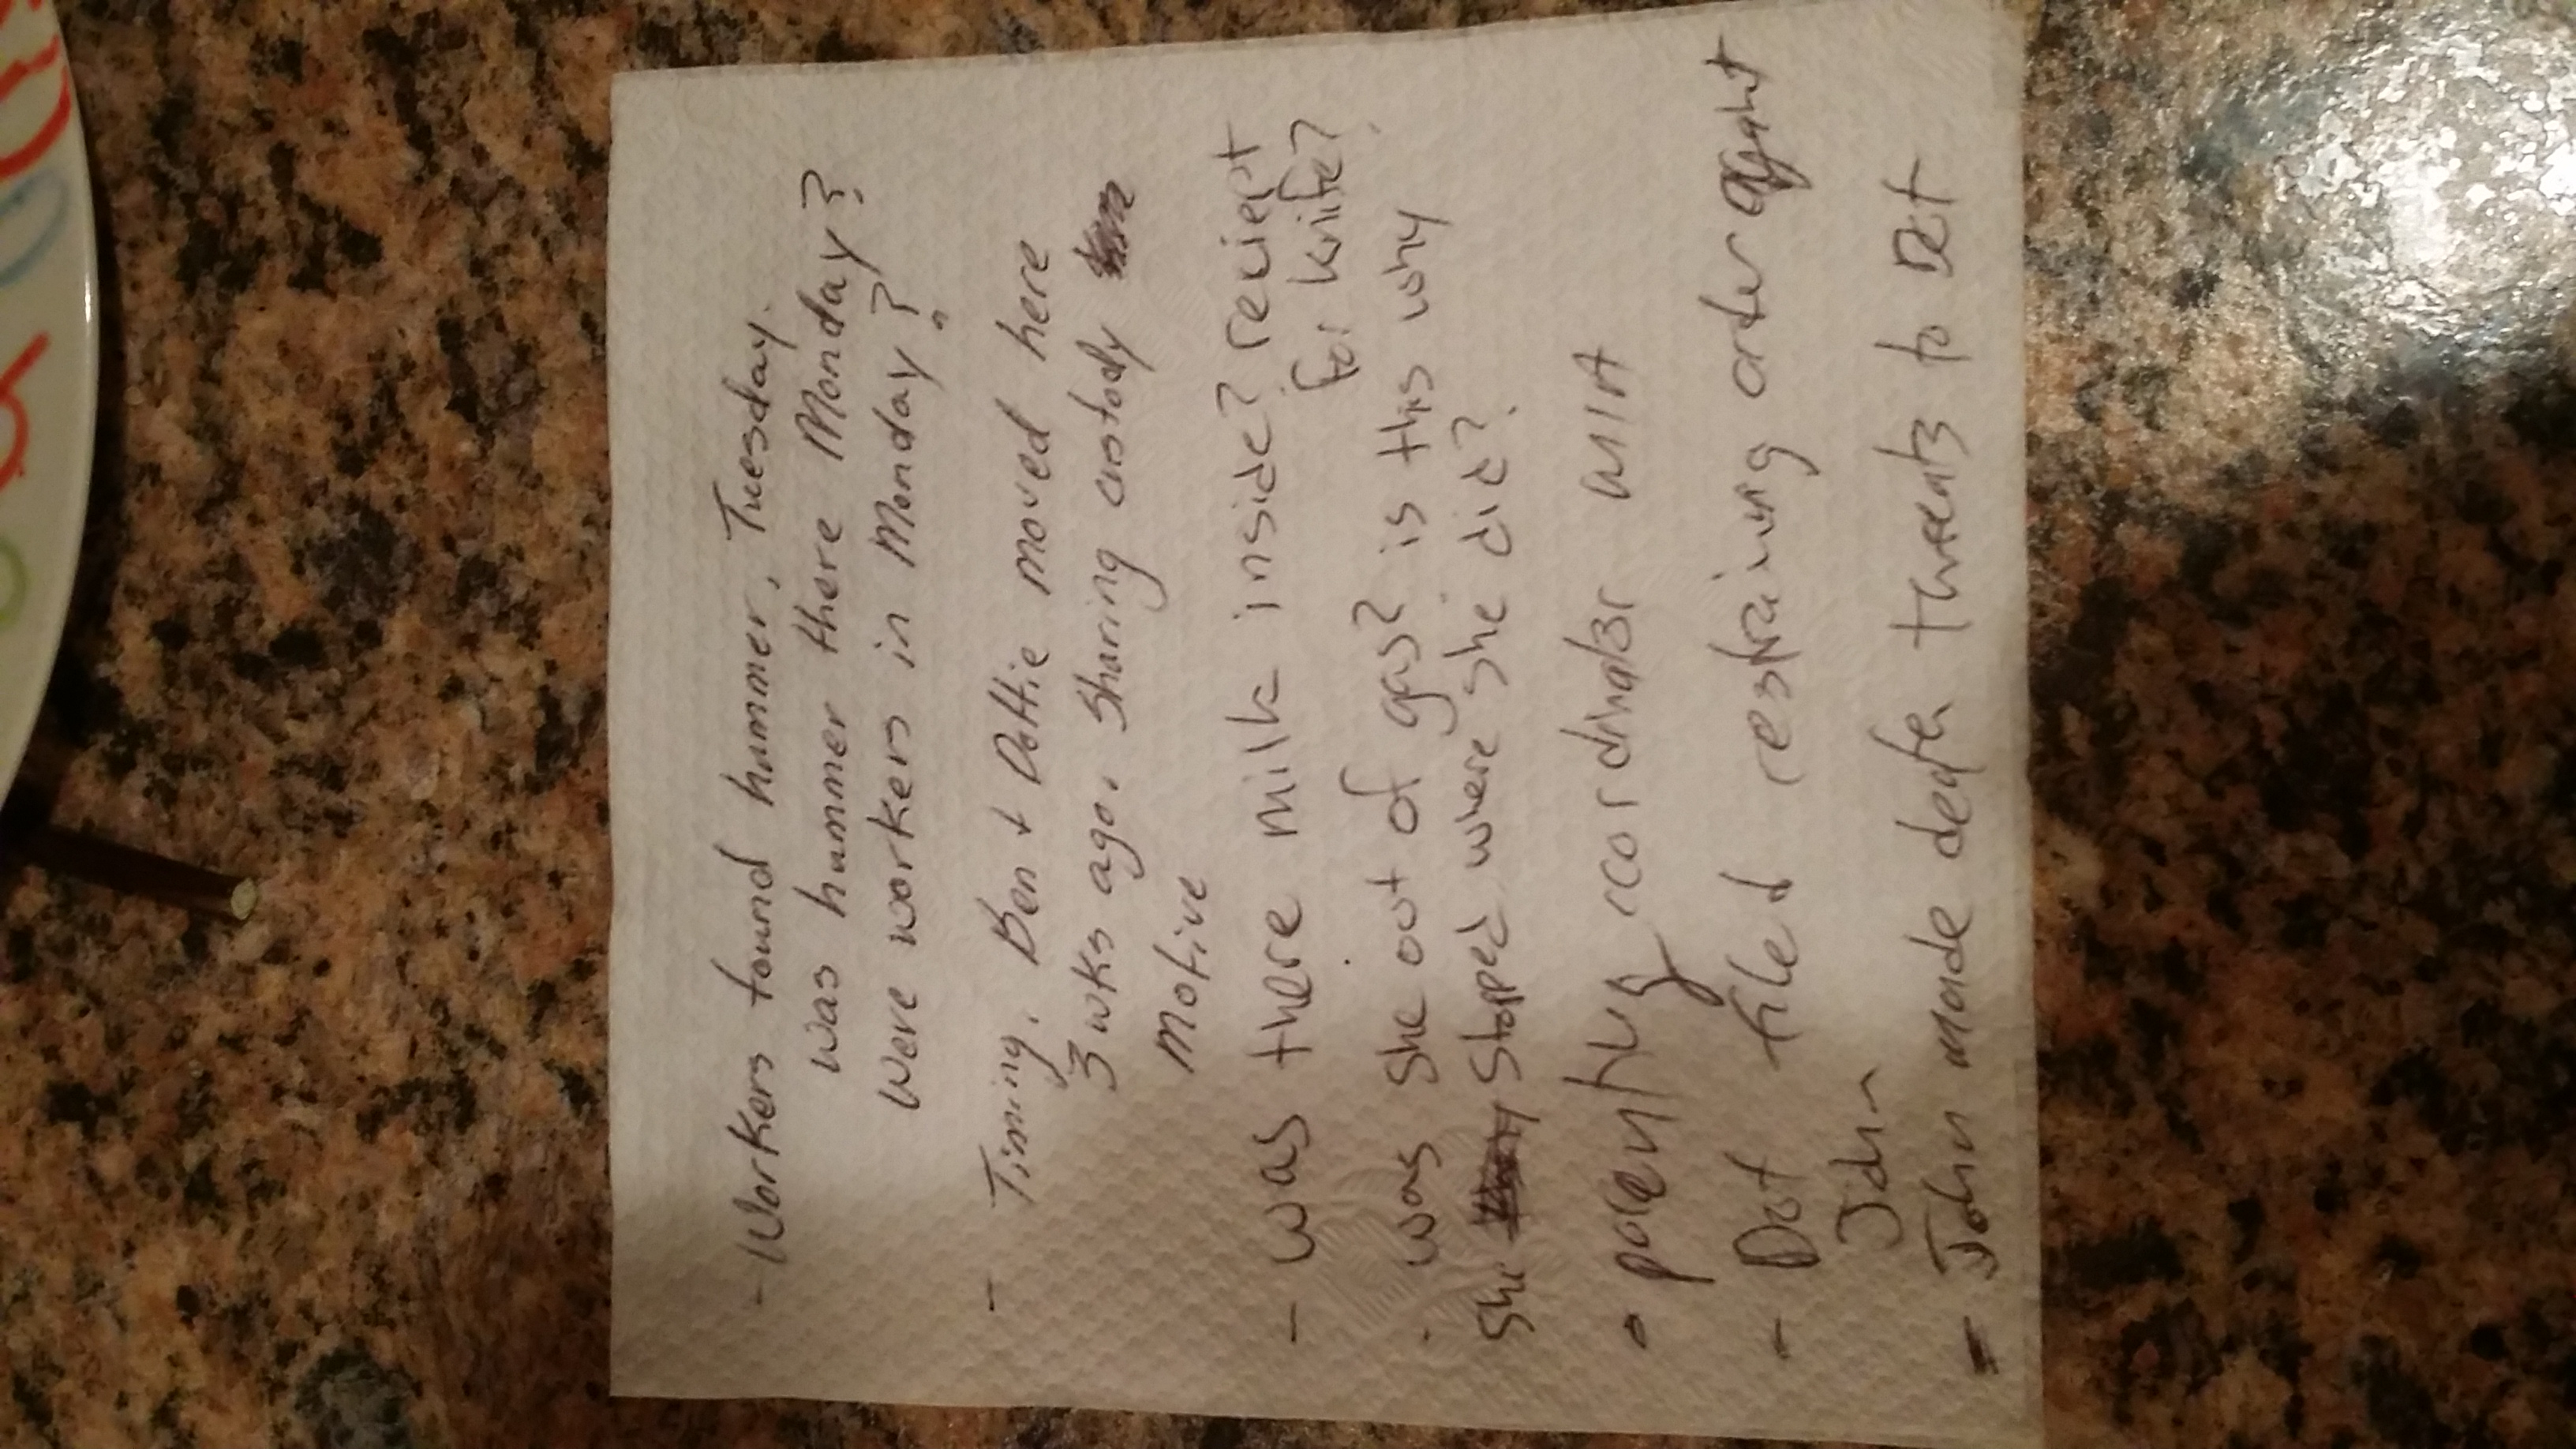 - Workers found hammer, Tuesday.
was hammer there Monday?
were workers in Monday?
- Timing. Ben + Dottie moved here
3 wks ago. Sharing custody
Motive
- was there milk inside? reciept
for knife?
· was she out of gas? is this why
she stopped where she did?
• parenting coordinator MIA
- Dot filed restraining order against
John
- John made death threats to Dot